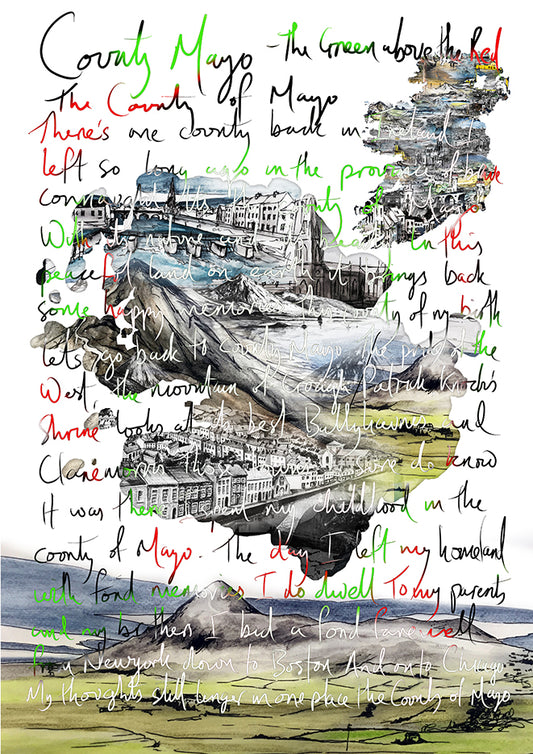 County Mayo - The Green above the Red
The County of Mayo
There's one county back in Ireland I
left so long ago in the province of
County of Mayo
With the nature and the in this
peaceful land on earth it brings back
some happy memories the county of my birth
Lets go back to County Mayo the pride of the
West, the mountain of Croagh Patrick Knock's
Shrine looks at its best Ballyhaunis and
Claremorris those towns I sure do know
It was there I spent my childhood in the
county of Mayo. The day I left my homeland
with fond memories I do dwell To my parents
and my brother I bid a fond farewell
From Newyork down to Boston And onto Chicago
My thoughts still linger in one place The County of Mayo